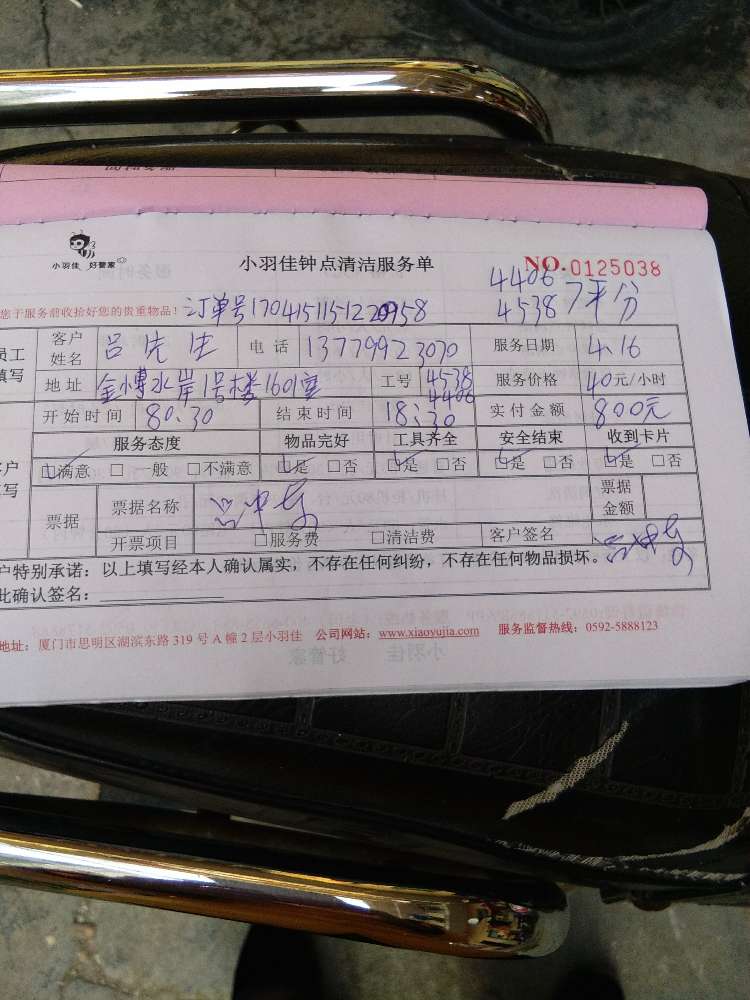 小羽佳 好管家
小羽佳钟点清洁服务单
NO.0125038
4406
4538 7平分
您于服务前收拾好您的贵重物品！订单号17041511512
员工
填写
客户姓名 吕先生 电话 13779923070 服务日期 4.16
地址 金博水岸1号楼1601室 工号 4538 4406 服务价格 40元/小时
开始时间 80:30 结束时间 18:30 实付金额 800元
客户
填写
服务态度 物品完好 工具齐全 安全结束 收到卡片
☑满意 □一般 □不满意 ☑是 □否 ☑是 □否 ☑是 □否 ☑是 □否
票据 票据名称 票据金额
开票项目 □服务费 □清洁费 客户签名
户特别承诺：以上填写经本人确认属实，不存在任何纠纷，不存在任何物品损坏。
此确认签名：
地址：厦门市思明区湖滨东路 319 号 A 幢 2 层小羽佳 公司网站：www.xiaoyujia.com 服务监督热线：0592-5888123